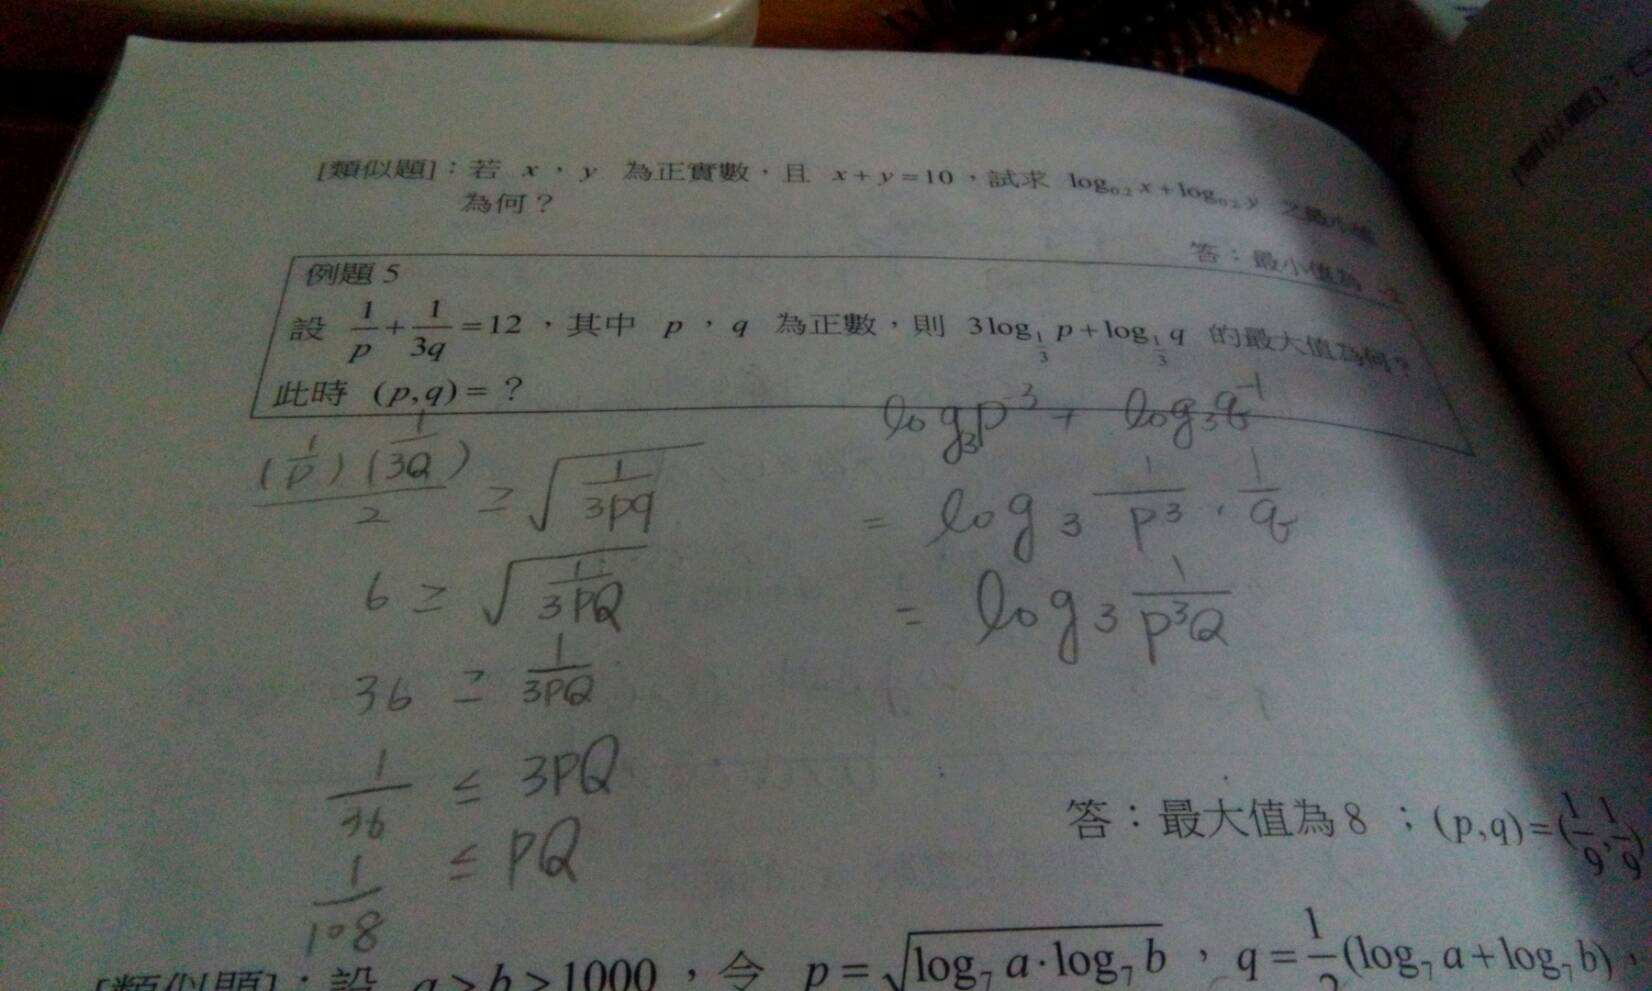 [類似題]：若 x，y 為正實數，且 x+y=10，試求 log₀.₂ x+log₀.₂ y 之最小值
為何？
答：最小值為 -2
例題 5
設 1/p + 1/3q =12，其中 p，q 為正數，則 3log_{1/3} p+log_{1/3} q 的最大值為何？
此時 (p,q)=？
(1/p)(1/3Q)/2 ≥ √(1/3pq)
6 ≥ √(1/3PQ)
36 ≥ 1/3PQ
1/36 ≤ 3PQ
1/108 ≤ PQ
log₃p⁻³ + log₃q⁻¹
= log₃ 1/p³ · 1/q
= log₃ 1/p³Q
答：最大值為8；(p,q)=(1/9,1/9)
[類似題]：設 a>b>1000，令 p=√(log₇ a·log₇ b)，q=1/2(log₇ a+log₇ b)，
[類似題]：